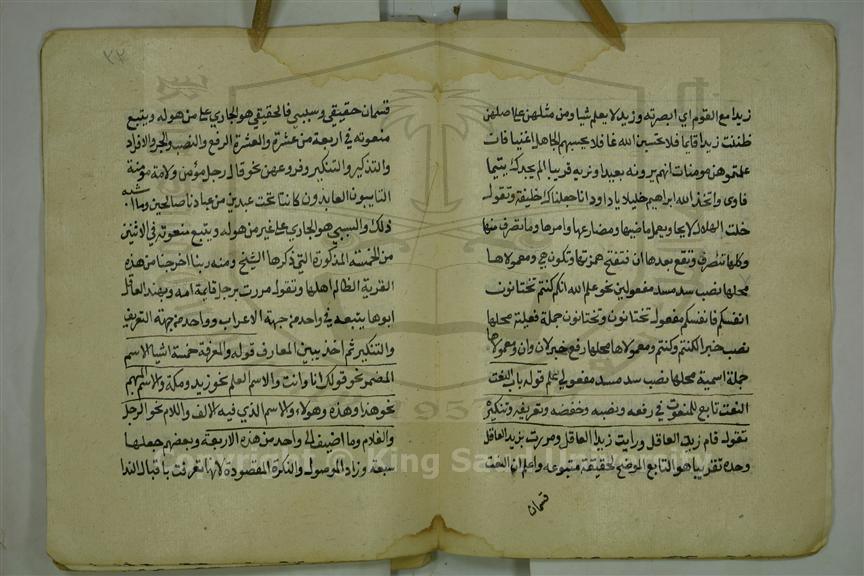 زيدا مع القوم اي ابصرته وزيد لا يعلم شيا ومن مثلهن على اصلهن
ظننت زيدا قايما فلا تحسبن الله غافلا يحسبهم الجاهل اغنيا فات
علمتموهن مومنات انهم يرونه بعيدا ونريه قريبا الم يجدك يتيما
فاوى واتخذ الله ابراهيم خليلا يا داود انا جعلناك خليفة وتقول
خلت الهلال لايحا ويعمل ماضيها ومضارعها وامرها وما تصرف منها
وكلها تتصرف وتقع بعدها ان فتفتح همزتها وتكون هي ومعمولاها
محلها نصب سد مسد مفعولين نحو علم الله انكم كنتم تختانون
انفسكم فانفسكم مفعول تختانون وتختانون جملة فعلية محلها
نصب خبرا لكنتم وكنتم ومعمولاها محلها رفع خبر لان وان ومعمولاها
جملة اسمية محلها نصب سد مسد مفعولي علم قوله باب النعت
النعت تابع للمنعوت في رفعه ونصبه وخفضه وتعريفه وتنكيره
تقول قام زيد العاقل ورايت زيدا العاقل ومررت بزيد العاقل
وحده تقريبا هو التابع الموضح لحقيقة متبوعه واعلم ان النعت
قسمان
٣٢
قسمان حقيقي وسببي فالحقيقي هو الجاري على من هو له ويتبع
منعوته في اربعة من عشرة والعشرة الرفع والنصب والجر والافراد
والتذكير والتنكير وفروعهن نحو قال رجل مؤمن ولامة مومنة
التايبون العابدون كانتا تحت عبدين من عبادنا صالحين وما اشبه
ذلك والسببي هو الجاري على غير من هو له ويتبع منعوته في الاثنين
من الخمسة المذكورة التي ذكرها الشيخ ومنه ربنا اخرجنا من هذه
القرية الظالم اهلها وتقول مررت برجل قايمة امه وبهند العاقل
ابوها يتبعه في واحد من جهة الاعراب وواحد من جهة التعريف
والتنكير ثم اخذ يبين المعارف قوله والمعرفة خمسة اشيا الاسم
المضمر نحو قولك انا وانت والاسم العلم نحو زيد ومكة والاسم المبهم
نحو هذا وهذه وهولاء والاسم الذي فيه الالف واللام نحو الرجل
والغلام وما اضيف الى واحد من هذه الاربعة وبعضهم جعلها
سبعة وزاد الموصول والنكرة المقصودة لانها تعرفت باقبال الندا
Copyright © King Saud University
1957